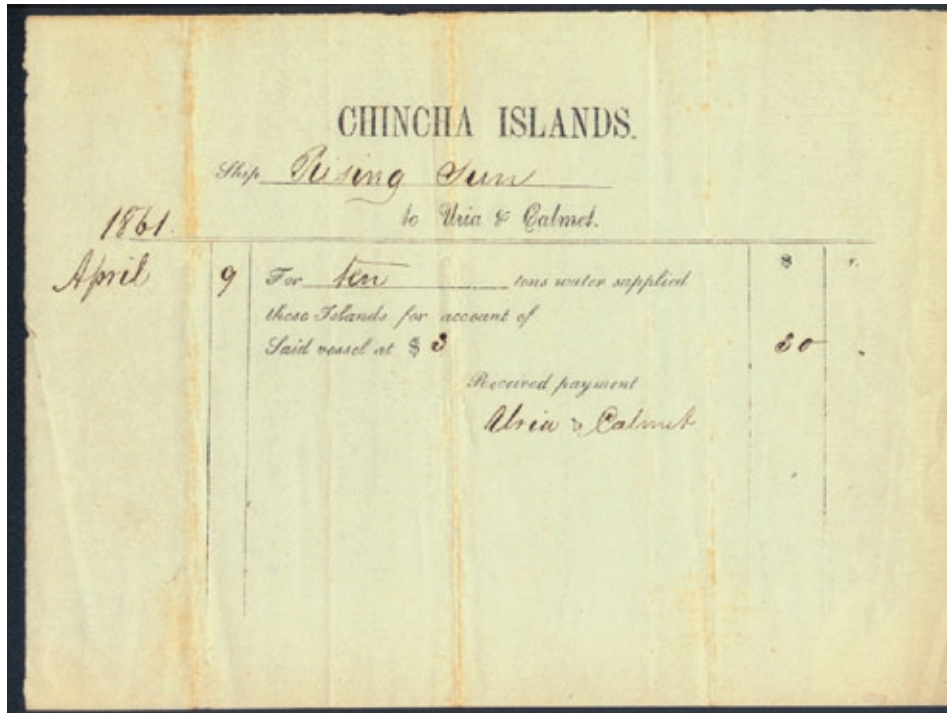 CHINCHA ISLANDS.
Ship Rising Sun
1861. to Uria & Calmet.
$ r.
April 9 For ten tons water supplied
these Islands for account of
Said vessel at $ 3 30
Received payment
Uria & Calmet